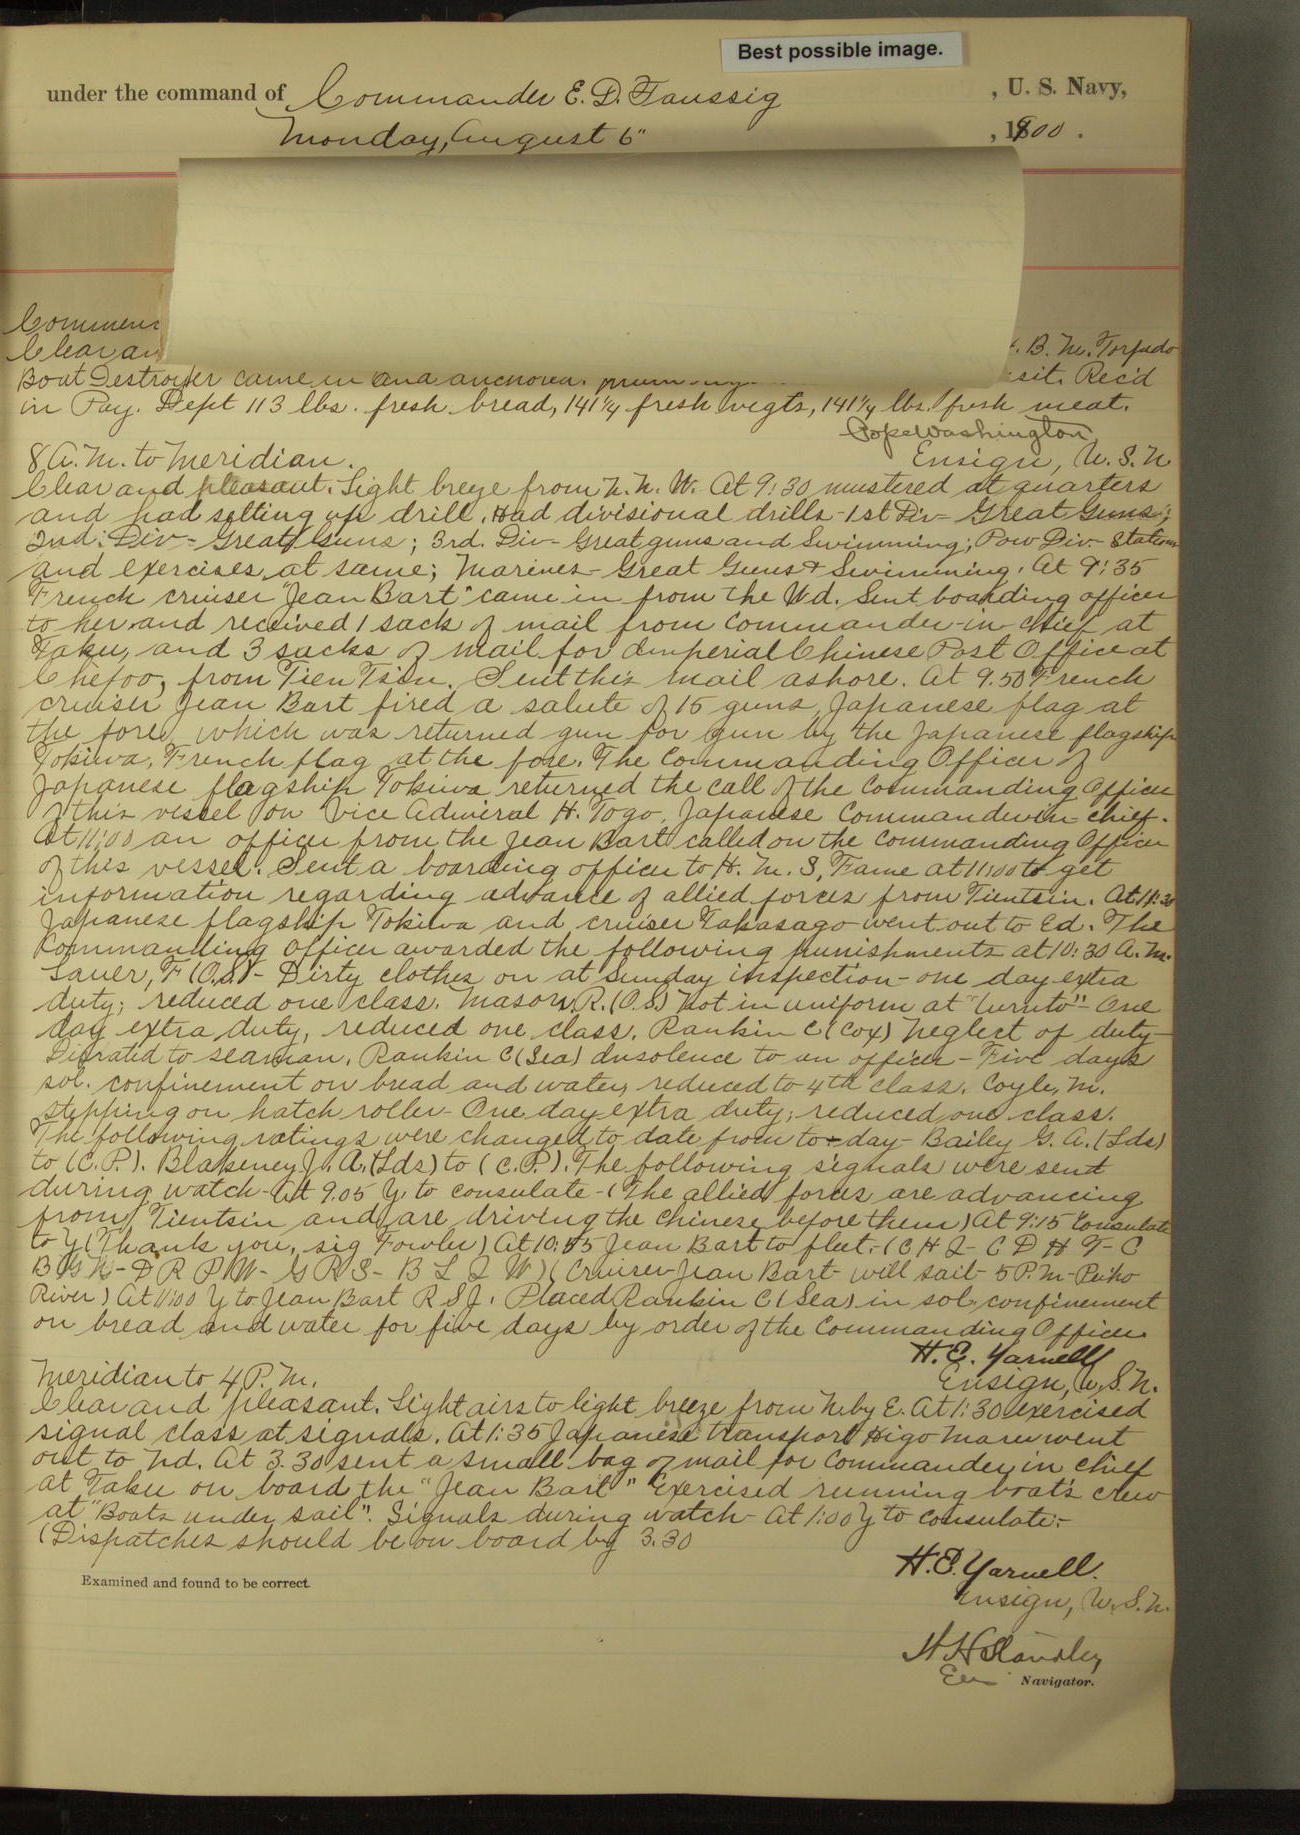 Best possible image.
under the command of Commander E. D. Taussig, U. S. Navy,
Monday, August 6", 1900.
Commenc
Clear an . B. M. Torpedo
Boat Destroyer came in and anchored. sit. Rec'd
in Pay. Dept 113 lbs. fresh bread, 141¼ fresh vegts, 141¼ lbs. fresh meat.
Pope Washington
8 A.M. to Meridian. Ensign, U. S. N
Clear and pleasant. Light breeze from N. N. W. At 9:30 mustered at quarters
and had setting up drill. Had divisional drills - 1st Div - Great Guns;
2nd. Div - Great Guns; 3rd. Div - Great guns and Swimming; Pow Div - Stations
and exercises at same; Marines - Great Guns & Swimming. At 9:35
French cruiser "Jean Bart" came in from the Wd. Sent boarding officer
to her and received 1 sack of mail from Commander-in-chief at
Taku, and 3 sacks of mail for Imperial Chinese Post Office at
Chefoo, from Tien Tsin. Sent this mail ashore. At 9.50 French
cruiser Jean Bart fired a salute of 15 guns, Japanese flag at
the fore, which was returned gun for gun by the Japanese flagship
Tokiwa, French flag at the fore. The Commanding Officer of
Japanese flagship Tokiwa returned the call of the Commanding Officer
of this vessel on Vice Admiral H. Togo, Japanese Commander in-chief.
At 11:00 an officer from the Jean Bart called on the Commanding Officer
of this vessel. Sent a boarding officer to H. M. S. Fame at 11:00 to get
information regarding advance of allied forces from Tientsin. At 11:30
Japanese flagship Tokiwa and cruiser Takasago went out to Ed. The
Commanding Officer awarded the following punishments at 10:30 A.M.
Lauer, F (O.S) - Dirty clothes on at Sunday inspection - one day extra
duty; reduced one class. Mason, R. (O.S) Not in uniform at "turnto" - One
day extra duty, reduced one class. Rankin C (Cox) Neglect of duty
Disrated to seaman. Rankin C (Sea) Insolence to an officer - Five days
sol. confinement on bread and water, reduced to 4th class. Coyle, M.
stepping on hatch roller - One day extra duty; reduced one class.
The following ratings were changed to date from to-day - Bailey G. A. (Lds)
to (C.P.). Blakeney J. A. (Lds) to (C.P.). The following signals were sent
during watch - At 9.05 Y to consulate - (The allied forces are advancing
from Tientsin and are driving the Chinese before them) At 9:15 Consulate
to Y (Thank you, sig Fowler) At 10:55 Jean Bart to fleet. - (C H Q - C D H T - C
B G N - D R P W - G R S - B L Q W) (Cruiser Jean Bart - will sail - 5 P.M - Peiho
River) At 11:00 Y to Jean Bart R S J. Placed Rankin C (Sea) in sol. confinement
on bread and water for five days by order of the Commanding Officer
H. E. Yarnell
Meridian to 4 P.M. Ensign, U.S.N.
Clear and pleasant. Light airs to light breeze from N. by E. At 1:30 exercised
signal class at signals. At 1:35 Japanese transport Higo Maru went
out to Nd. At 3.30 sent a small bag of mail for Commander in chief
at Taku on board the "Jean Bart" Exercised running boats crew
at "Boats under sail". Signals during watch - At 1:00 Y to consulate: -
(Dispatches should be on board by 3.30
H. E. Yarnell.
Examined and found to be correct.
Ensign, U.S.N.
Standley
Navigator.